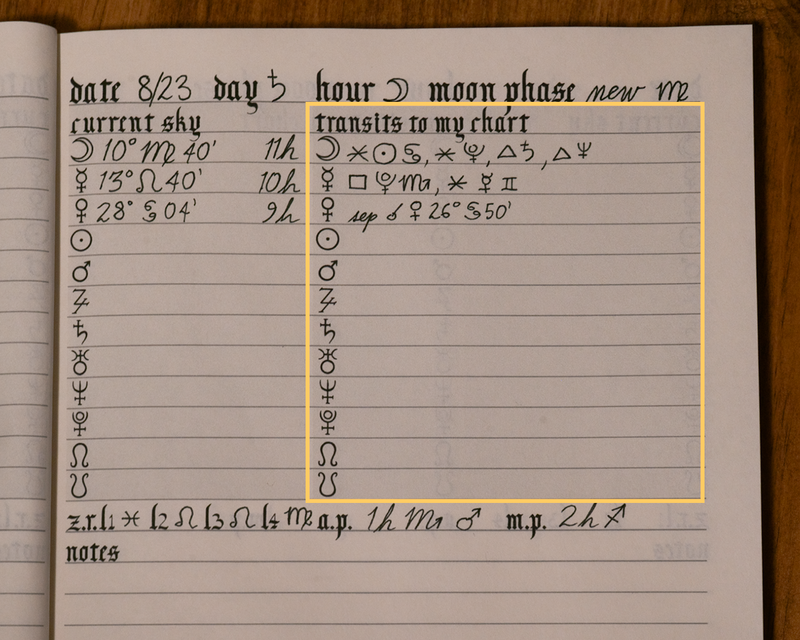 date 8/23 day ♄ hour ☽ moon phase new ♍
current sky
☽ 10° ♍ 40' 11h
☿ 13° ♌ 40' 10h
♀ 28° ♋ 04' 9h
☉
♂
♃
♄
♅
♆
♇
☊
☋
transits to my chart
☽ ⚹ ☉ ♋, ⚹ ♇, △ ♄, △ ♆
☿ □ ♇ ♏, ⚹ ☿ ♊
♀ sep ☌ ♀ 26° ♋ 50'
☉
♂
♃
♄
♅
♆
♇
☊
☋
z.r. l1 ♓ l2 ♌ l3 ♌ l4 ♍ a.p. 1h ♏ ♂ m.p. 2h ♐
notes